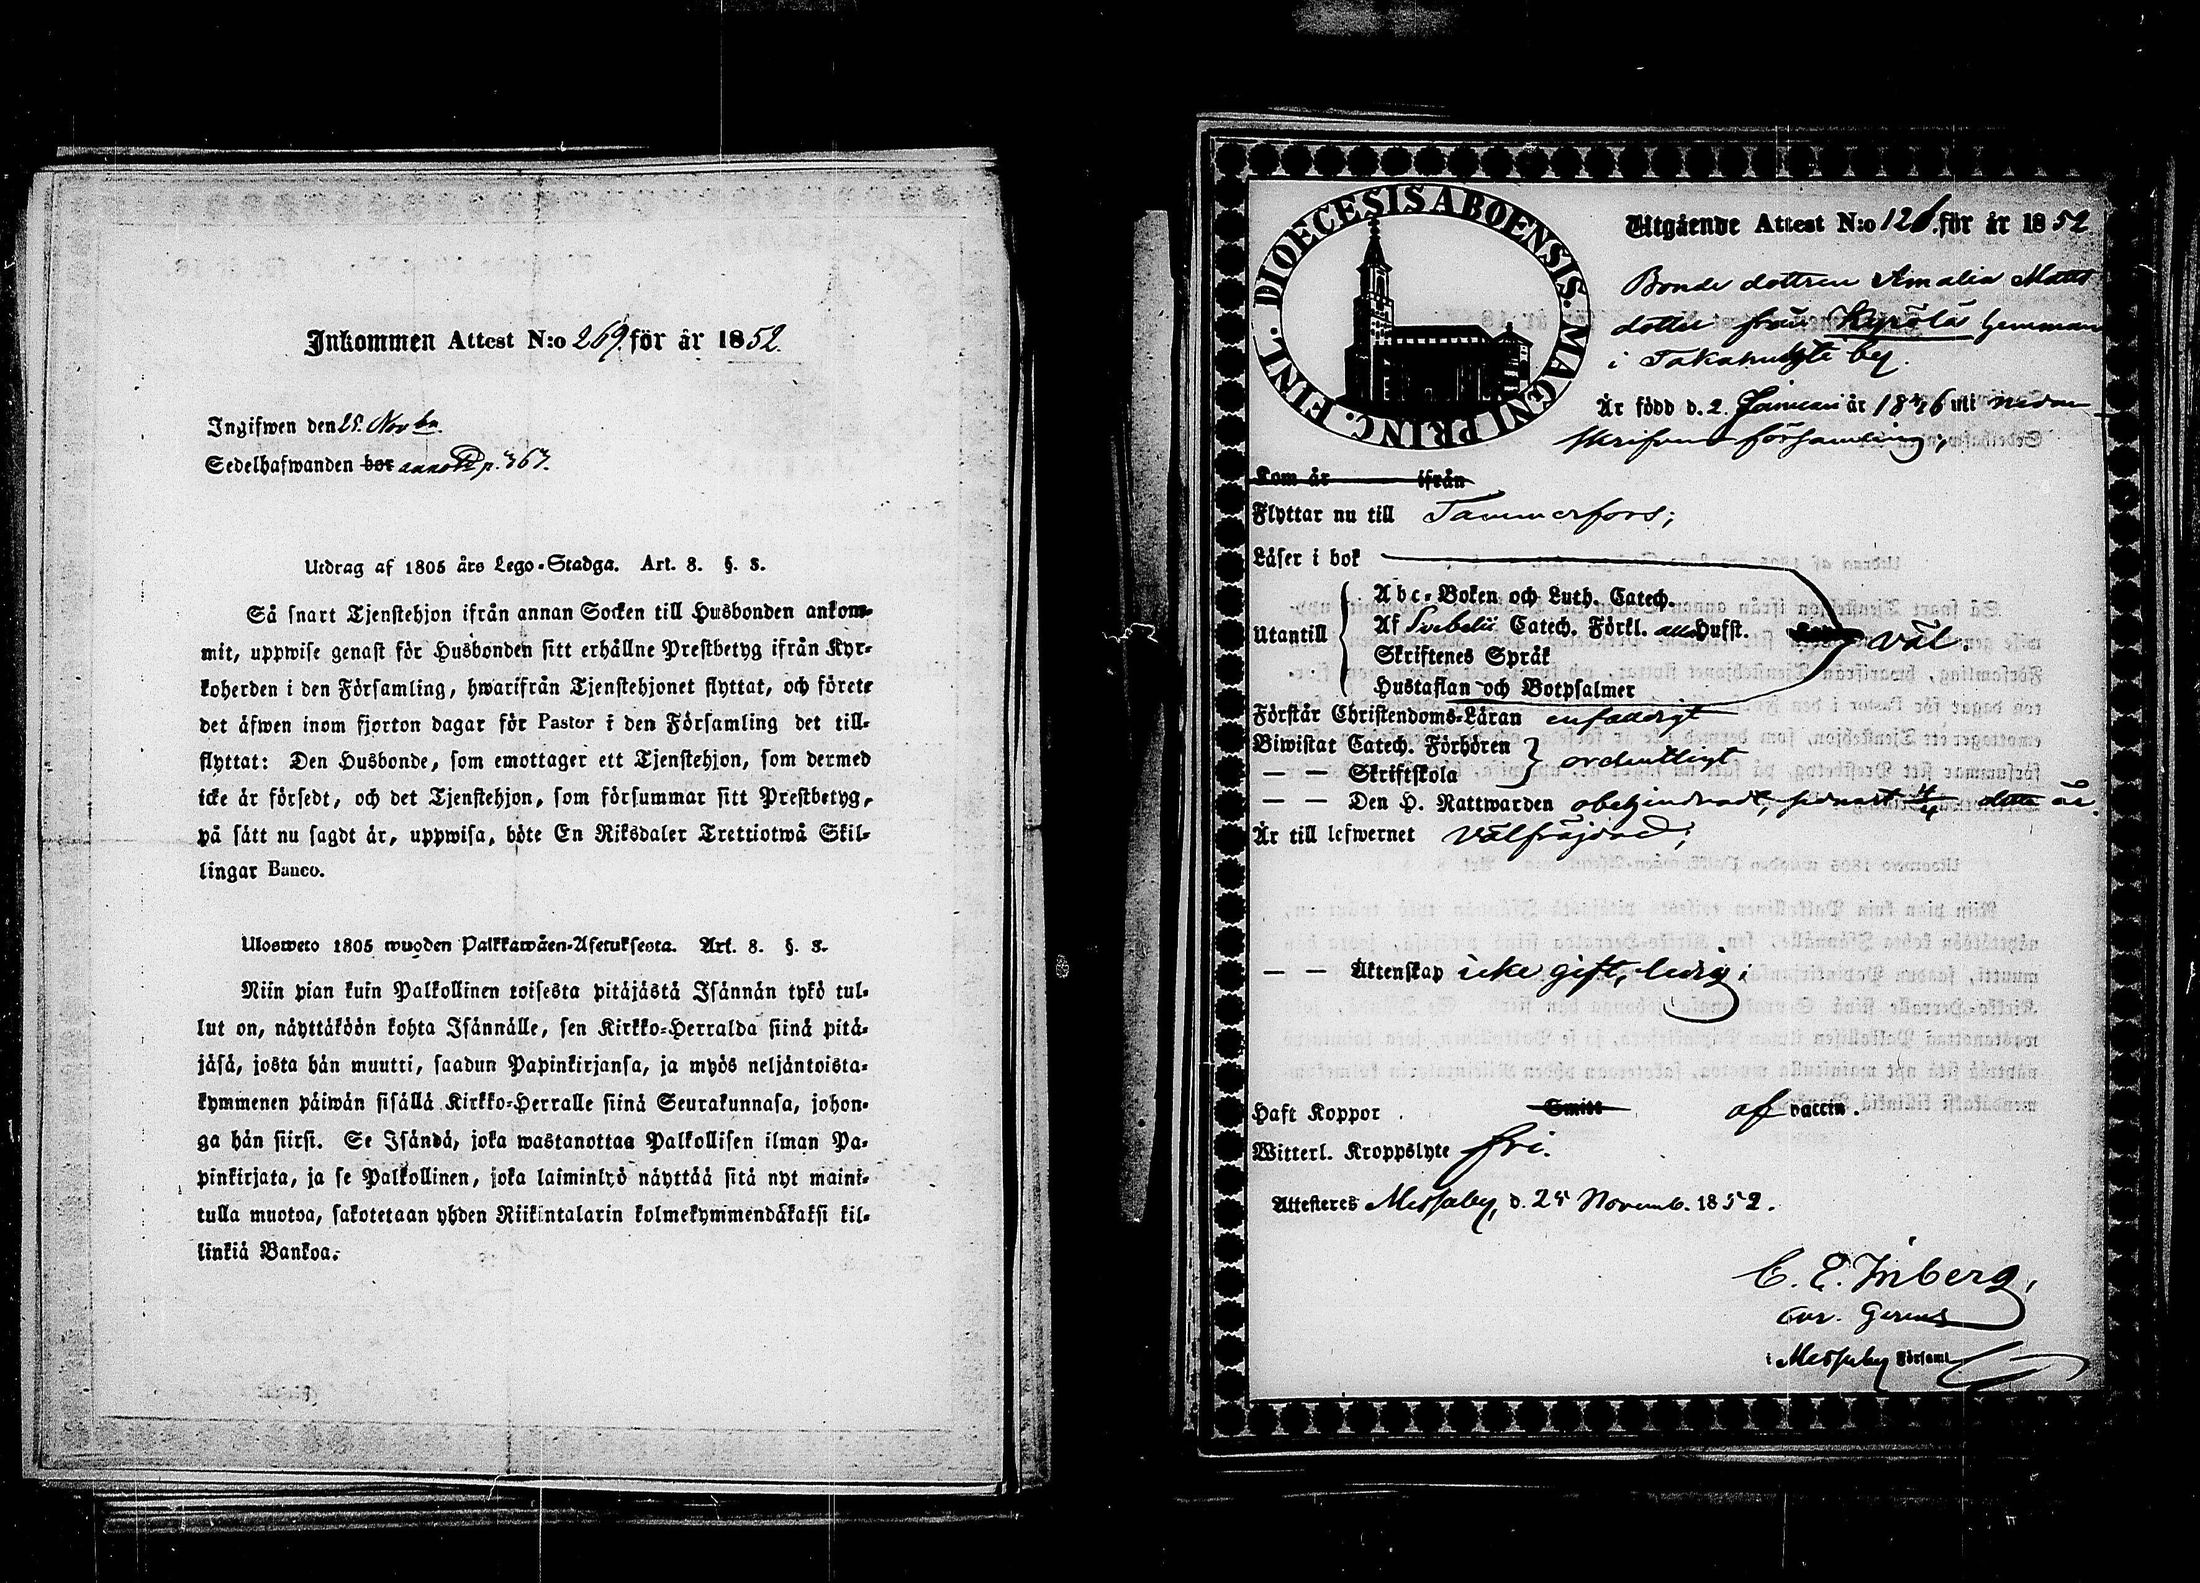 Inkommen Attest N:o 269. för år 1852.
Ingifwen den 25. Novbr.
Sedelhafwanden bor annot p. 363.
Utdrag af 1805 års Lego-Stadga. Art. 8. §. 3.
Så snart Tjenstehjon ifrån annan Socken till Husbonden ankom-
mit, uppwise genast för Husbonden sitt erhållne Prestbetyg ifrån Kyr-
koherden i den Församling, hwarifrån Tjenstehjonet flyttat, och förete
det äfwen inom fjorton dagar för Pastor i den Församling det till-
flyttat: Den Husbonde, som emottager ett Tjenstehjon, som dermed
icke är försedt, och det Tjenstehjon, som försummar sitt Prestbetyg,
på sätt nu sagdt är, uppwisa, böte En Riksdaler Trettiotwå Skil-
lingar Banco.
Ulosweto 1805 wuoden Palkkawäen-Asetuksesta. Art. 8. §. 3.
Niin pian kuin Palkollinen toisesta pitäjästä Isännän tykö tul-
lut on, näyttäköön kohta Isännälle, sen Kirkko-Herralda siinä pitä-
jäsä, josta hän muutti, saadun Papinkirjansa, ja myös neljäntoista-
kymmenen päiwän sisällä Kirkko-Herralle siinä Seurakunnasa, johon-
ga hän siirsi. Se Isändä, joka wastanottaa Palkollisen ilman Pa-
pinkirjata, ja se Palkollinen, joka laiminlyö näyttää sitä nyt maini-
tulla muotoa, sakotetaan yhden Riikintalarin kolmekymmendäkaksi kil-
linkiä Bankoa.
DIOECESIS ABOENSIS. MAGNI PRINC. FINL.
Utgående Attest N:o 126. för år 1852
Bonde dottren Amalia Matts
dotter från Kyrölä hemman
i Takahuhti by.
Är född d. 2. Januari år 1836 uti nedan
skrifne församling;
Kom år ifrån
Flyttar nu till Tammerfors;
Läser i bok
Abc-Boken och Luth. Catech.
Utantill Af Svebelii Catech. Förkl. alla Hufst. väl.
Skriftenes Språk
Hustaflan och Botpsalmer
Förstår Christendoms-Läran enfaldigt
Biwistat Catech. Förhören ordentligt
— — Skriftskola
— — Den H. Nattwarden obehindradt, senast detta år.
Är till lefwernet välfräjdad;
— — Äktenskap icke gift, ledig;
Haft Koppor Smitt af vaccin.
Witterl. Kroppslyte fri.
Attesteras Messuby, d. 25 Novemb. 1852.
C. E. Inberg,
cur. Gerens
i Messuby Församl.